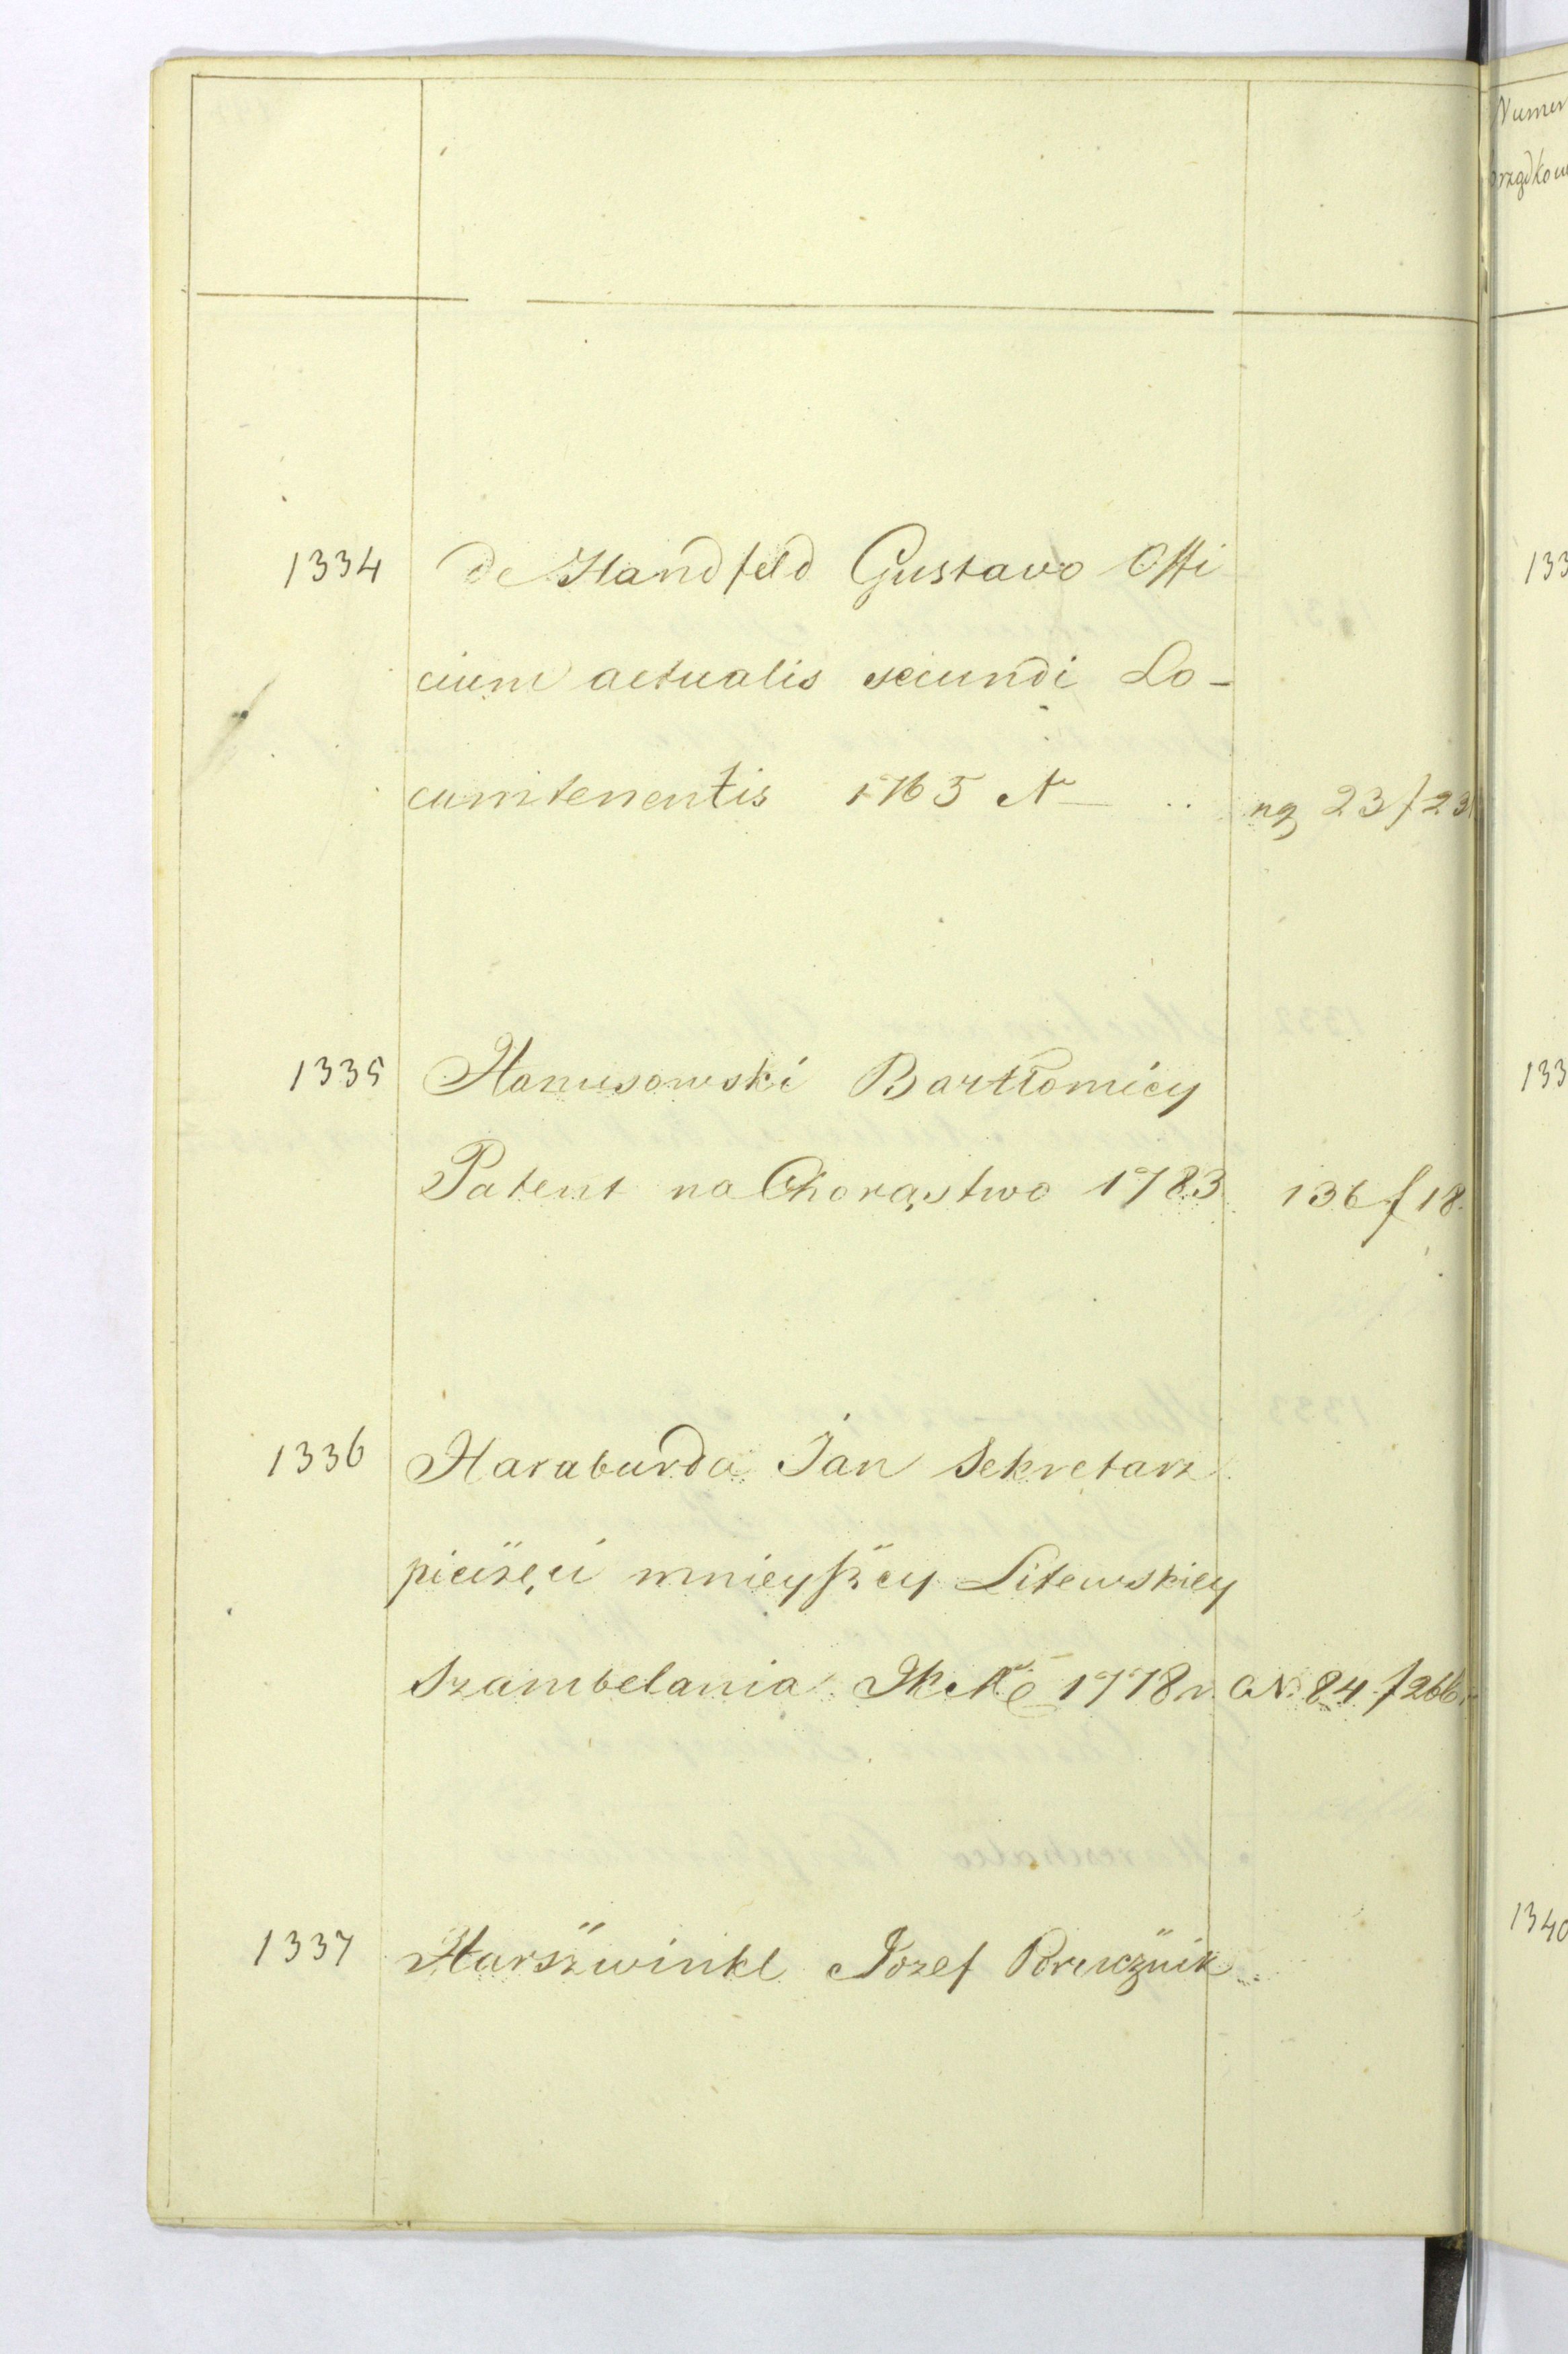 Numer
1334 de Handfeld Gustavo Offi
cium actualis secundi Lo-
cumtenentis 1765 N .. ng 23 f 23
1335 Hanusowski Bartłomiey
Patent na Chorąstwo 1783 136 f 18.
1336 Haraburda Jan Sekretarz
pieczęci mnieyszey Litewskiey
Szambelania 1778 r. N. 84 f 266
1337 Harszwinkl Jozef Porucznik
133
133
1340